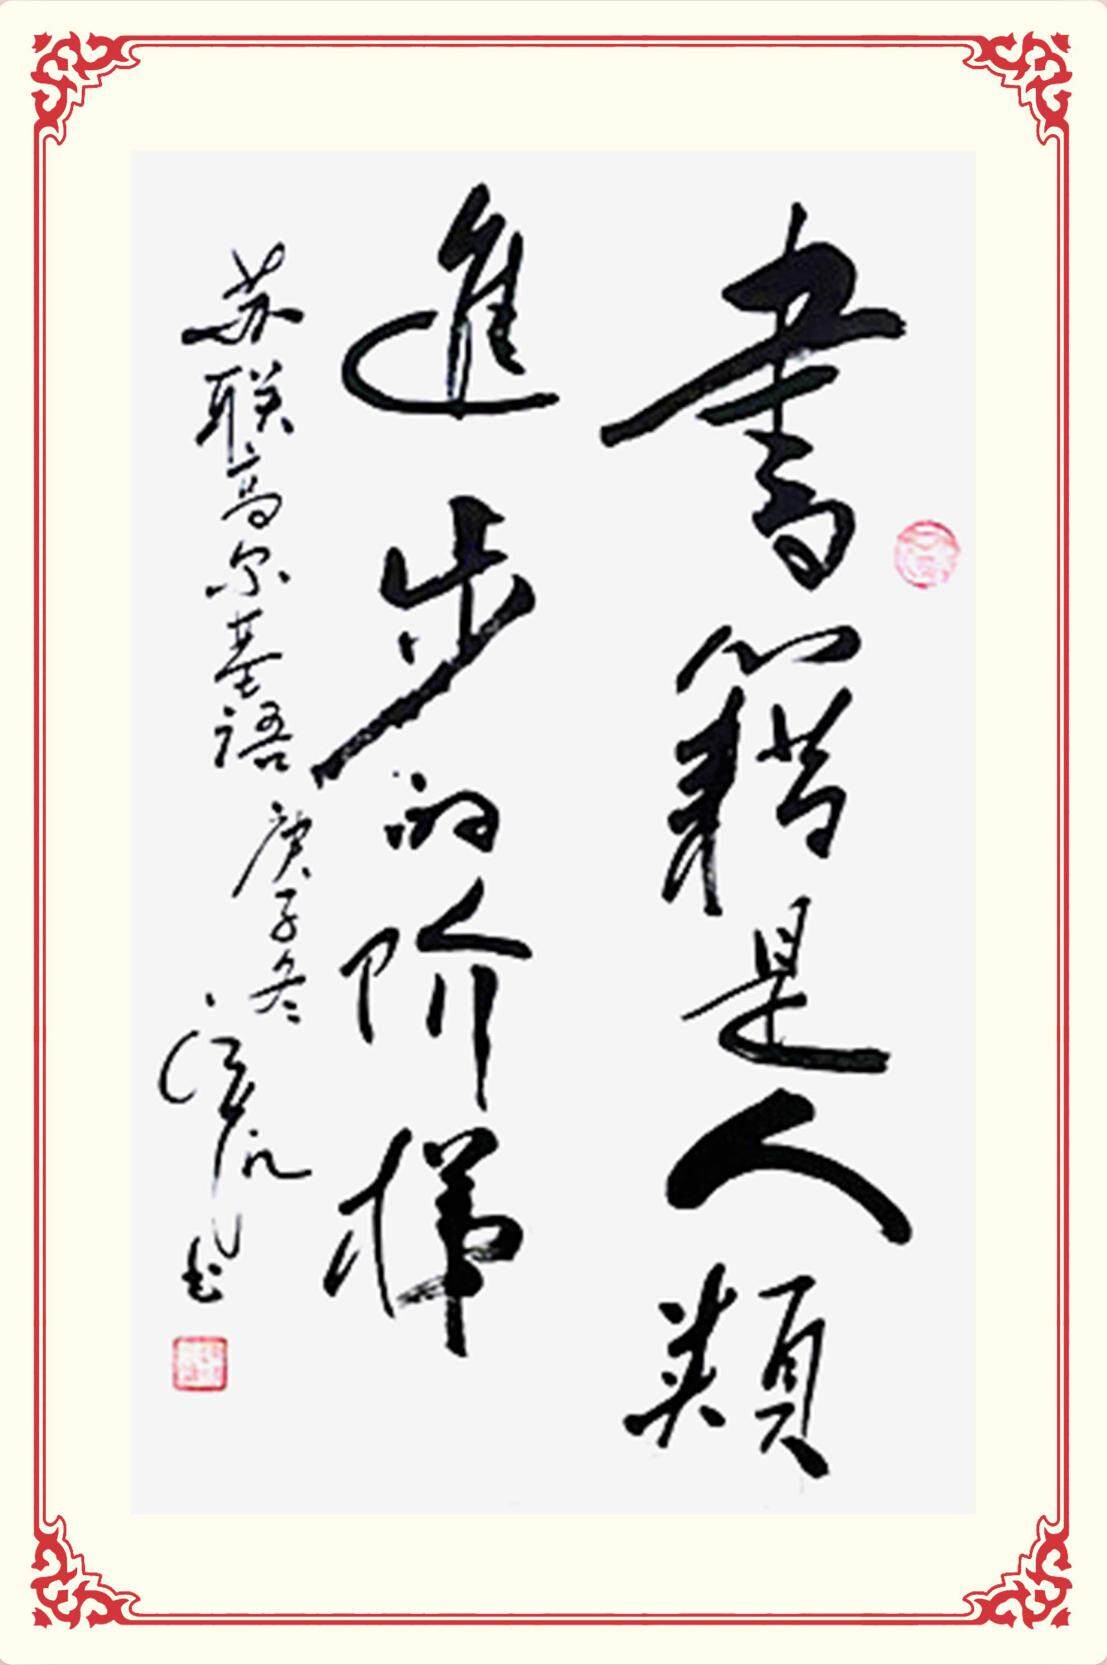 書籍是人類
進步的阶梯
苏联高尔基语 庚子冬
书